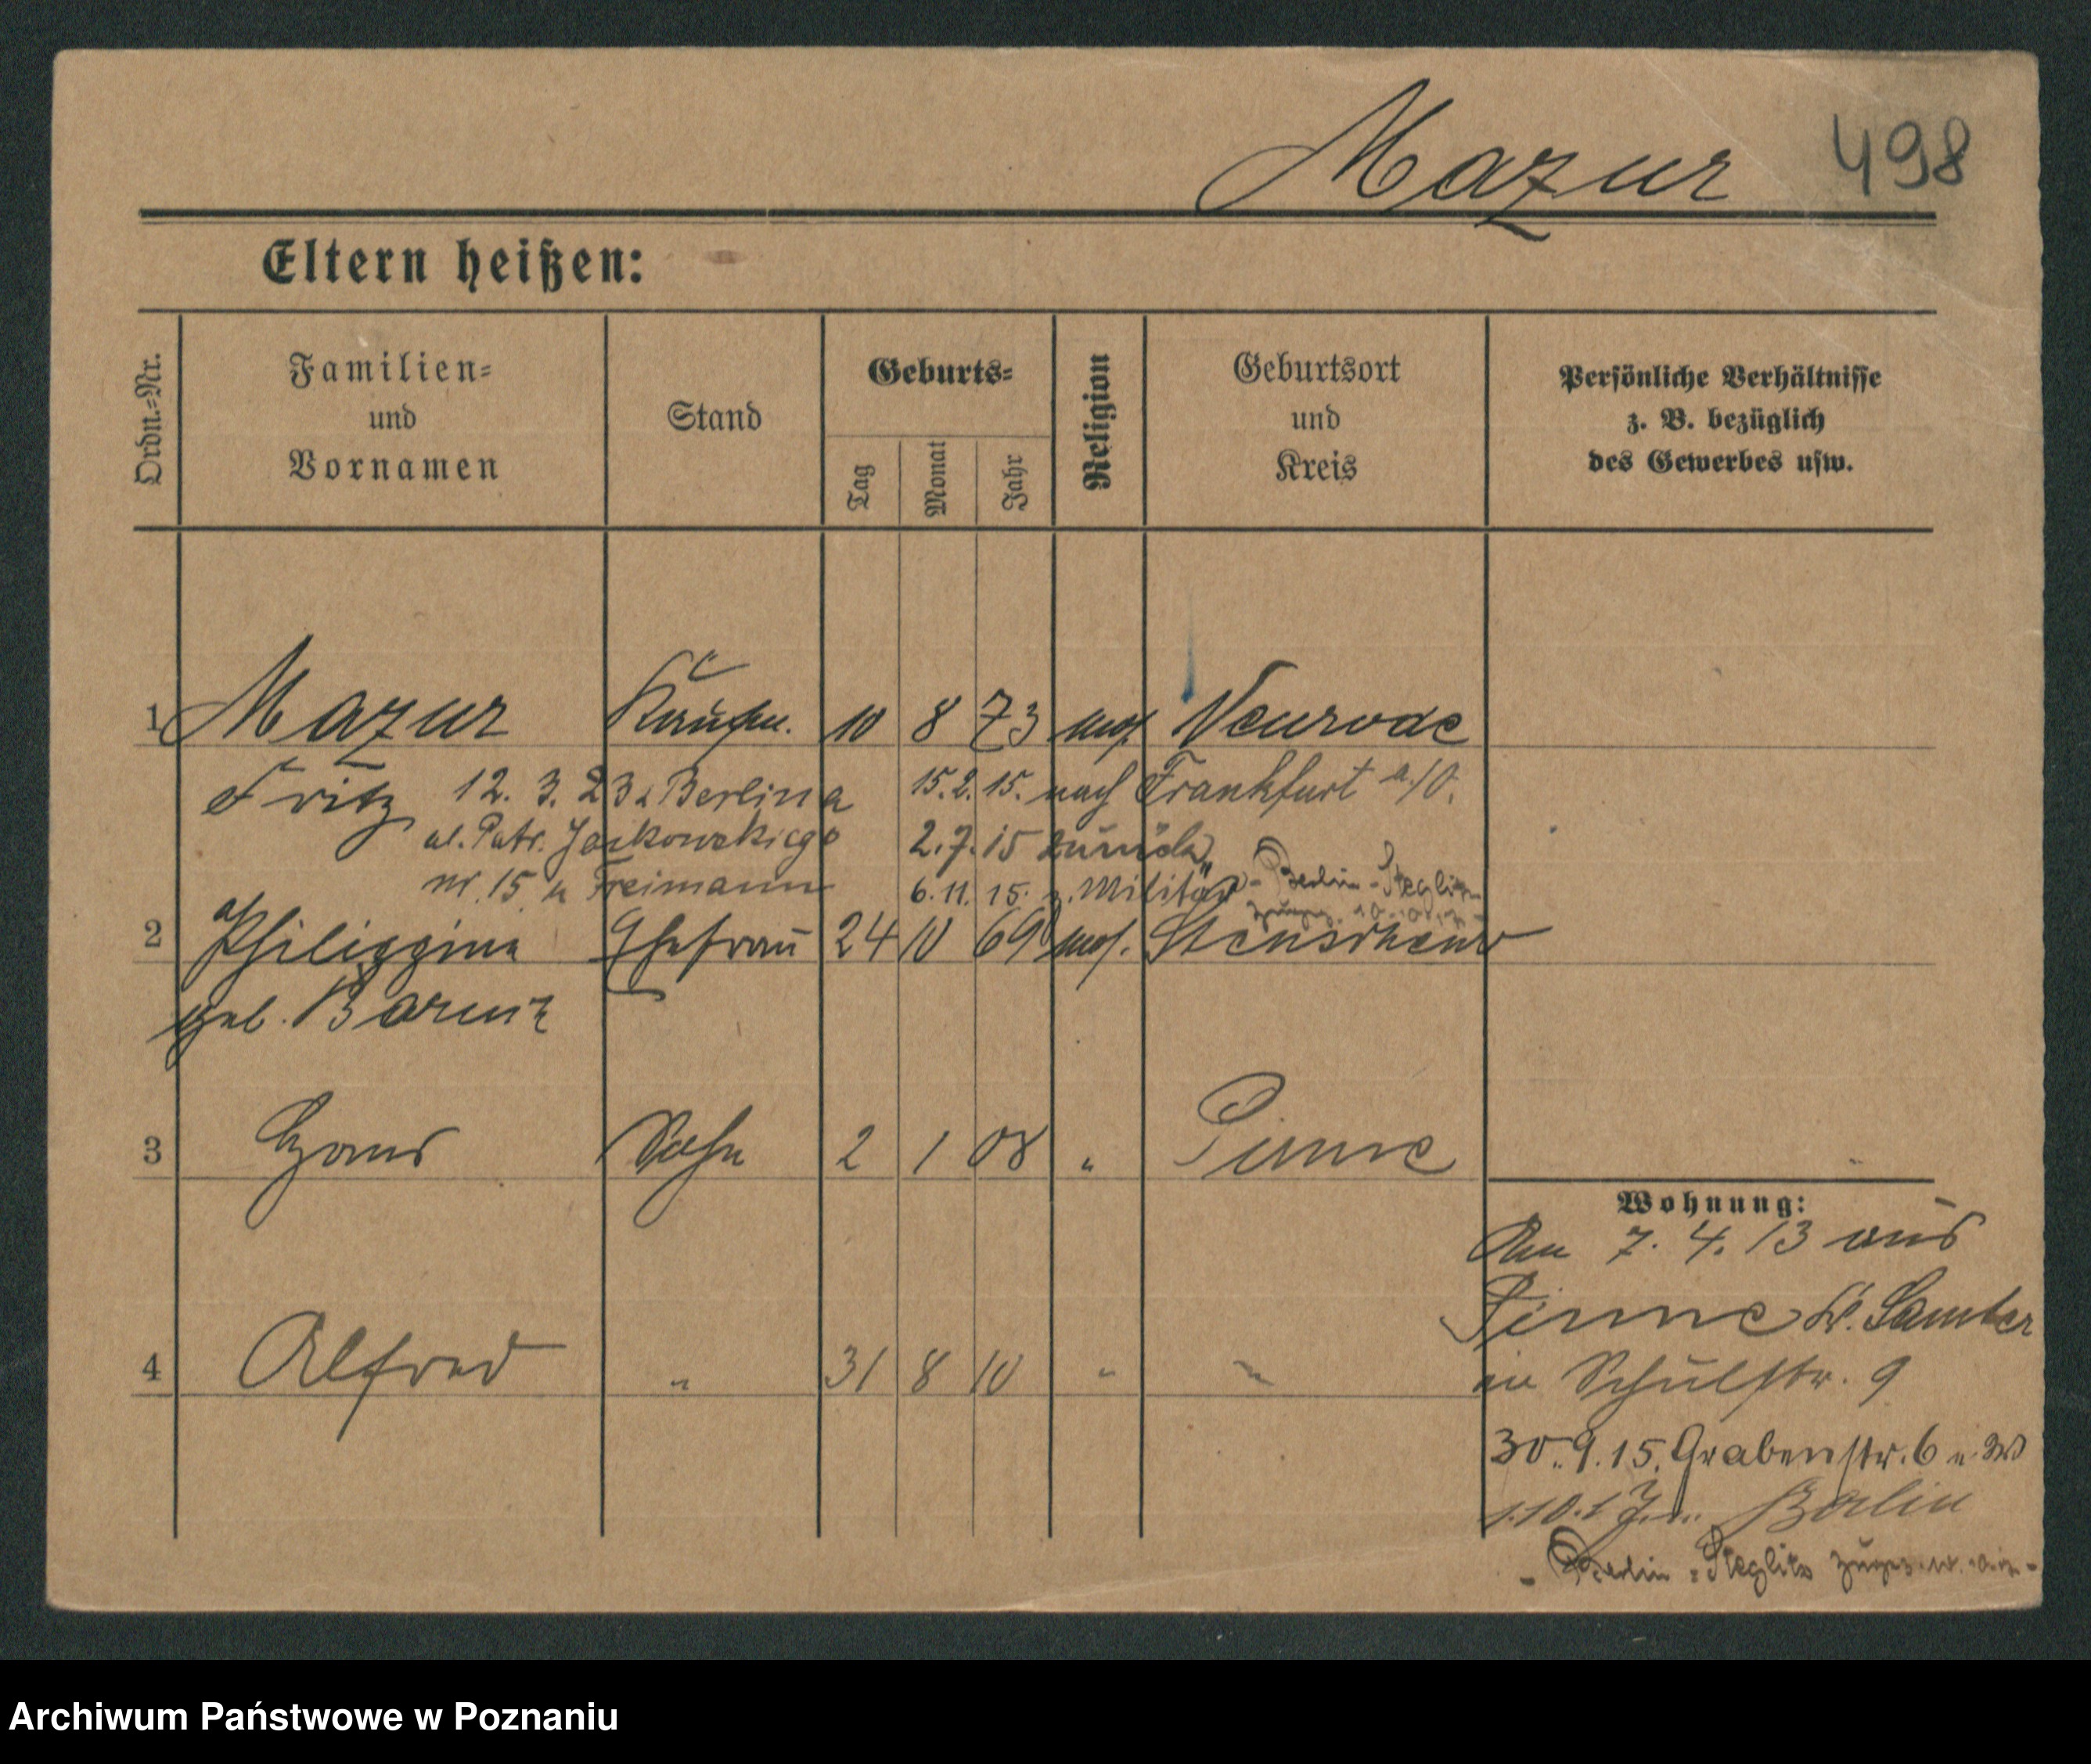 Mazur 498
Eltern heißen:
Ordn.-Nr.
Familien-
und
Vornamen
Stand
Geburts-
Tag
Monat
Jahr
Religion
Geburtsort
und
Kreis
Persönliche Verhältnisse
z. B. bezüglich
des Gewerbes usw.
1 Mazur Kaufm. 10 8 73 mos. Neurode
Fritz 12. 3. 23 z Berlina 15. 2. 15. nach Frankfurt a./O.
ul. Patr. Jackowskiego 2. 7. 15 zurück
nr. 15 u Freimann 6. 11. 15. z. Militär - Berlin-Steglitz
2 Philippine Ehefrau 24 10 69 mos.
geb.
3 Hans Sohn 2 1 08 " Pinne
4 Alfred " 31 8 10 " "
Wohnung:
Am 7. 4. 13 aus
Pinne Kr. Samter
in Schulstr. 9
30. 9. 15. Grabenstr. 6
1.10.17 Berlin
- Berlin-Steglitz
Archiwum Państwowe w Poznaniu